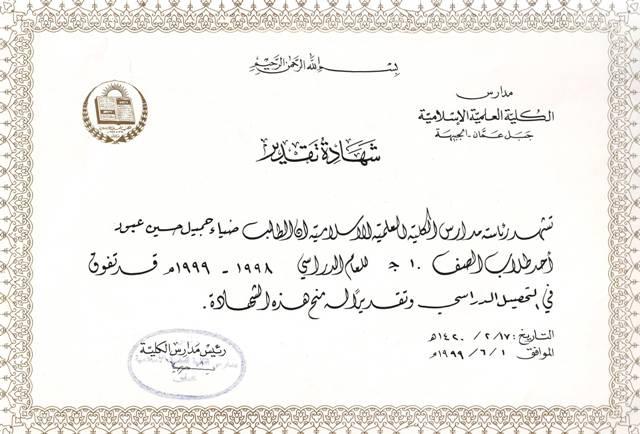 بسم الله الرحمن الرحيم
مدارس
الكلية العلمية الإسلامية
جبل عمّان - الجبيهة
شهادة تقدير
تشهد رئاسة مدارس الكلية العلمية الاسلامية ان الطالب ضياء جميل حسين عبور
أحد طلاب الصف ١٠ جـ للعام الدراسي ١٩٩٨ - ١٩٩٩م قد تفوق
في التحصيل الدراسي وتقديراً له منح هذه الشهادة.
التاريخ: ١٧ / ٢ / ١٤٢٠هـ
الموافق ١ / ٦ / ١٩٩٩م
رئيس مدارس الكلية